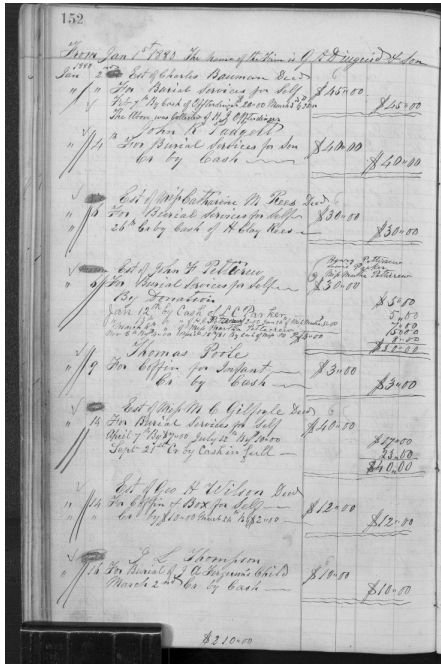 152
From Jan 1st 1883 The name of the Firm is & Son
1883
Jan 2nd Est of Charles Bauman Decd
" " For Burial Services for Self $45"00
Feb 7th By Cash of Offterdinger 20=00 March $45"00
The Above was collected of H. J. Offterdinger
John R. Padgett
" 4th For Burial Services for Son $40"00
Cr by Cash $40"00
Est of Miss Catharine M Rees Decd
" 5 For Burial Services for Self $30"00
26th Cr by Cash of H Clay Rees $30"00
Est of John H Pettecrew
" 6 For Burial Services for Self $30"00
By Donation $5"00
Jan 12th by Cash of L C Parker 5"00
$30"00
Thomas Foote
" 9 For Coffin for Infant $3"00
Cr by Cash $3"00
Est of Miss M C Gilfoyle Decd
" 14 For Burial Services for Self $40"00
April 7th By $7=00 July 12th By $10=00 $17"00
Sept 21st Cr by Cash in full 23"00
$40"00
Est of Geo H Wilson Decd
" 14 For Coffin & Box for Self $12"00
" " Cr by $10=00 March 24th By $2=00 $12"00
J L Thompson
" 16 For Burial of J A Ferguson's Child $10"00
March 2nd Cr by Cash $10"00
$210"00